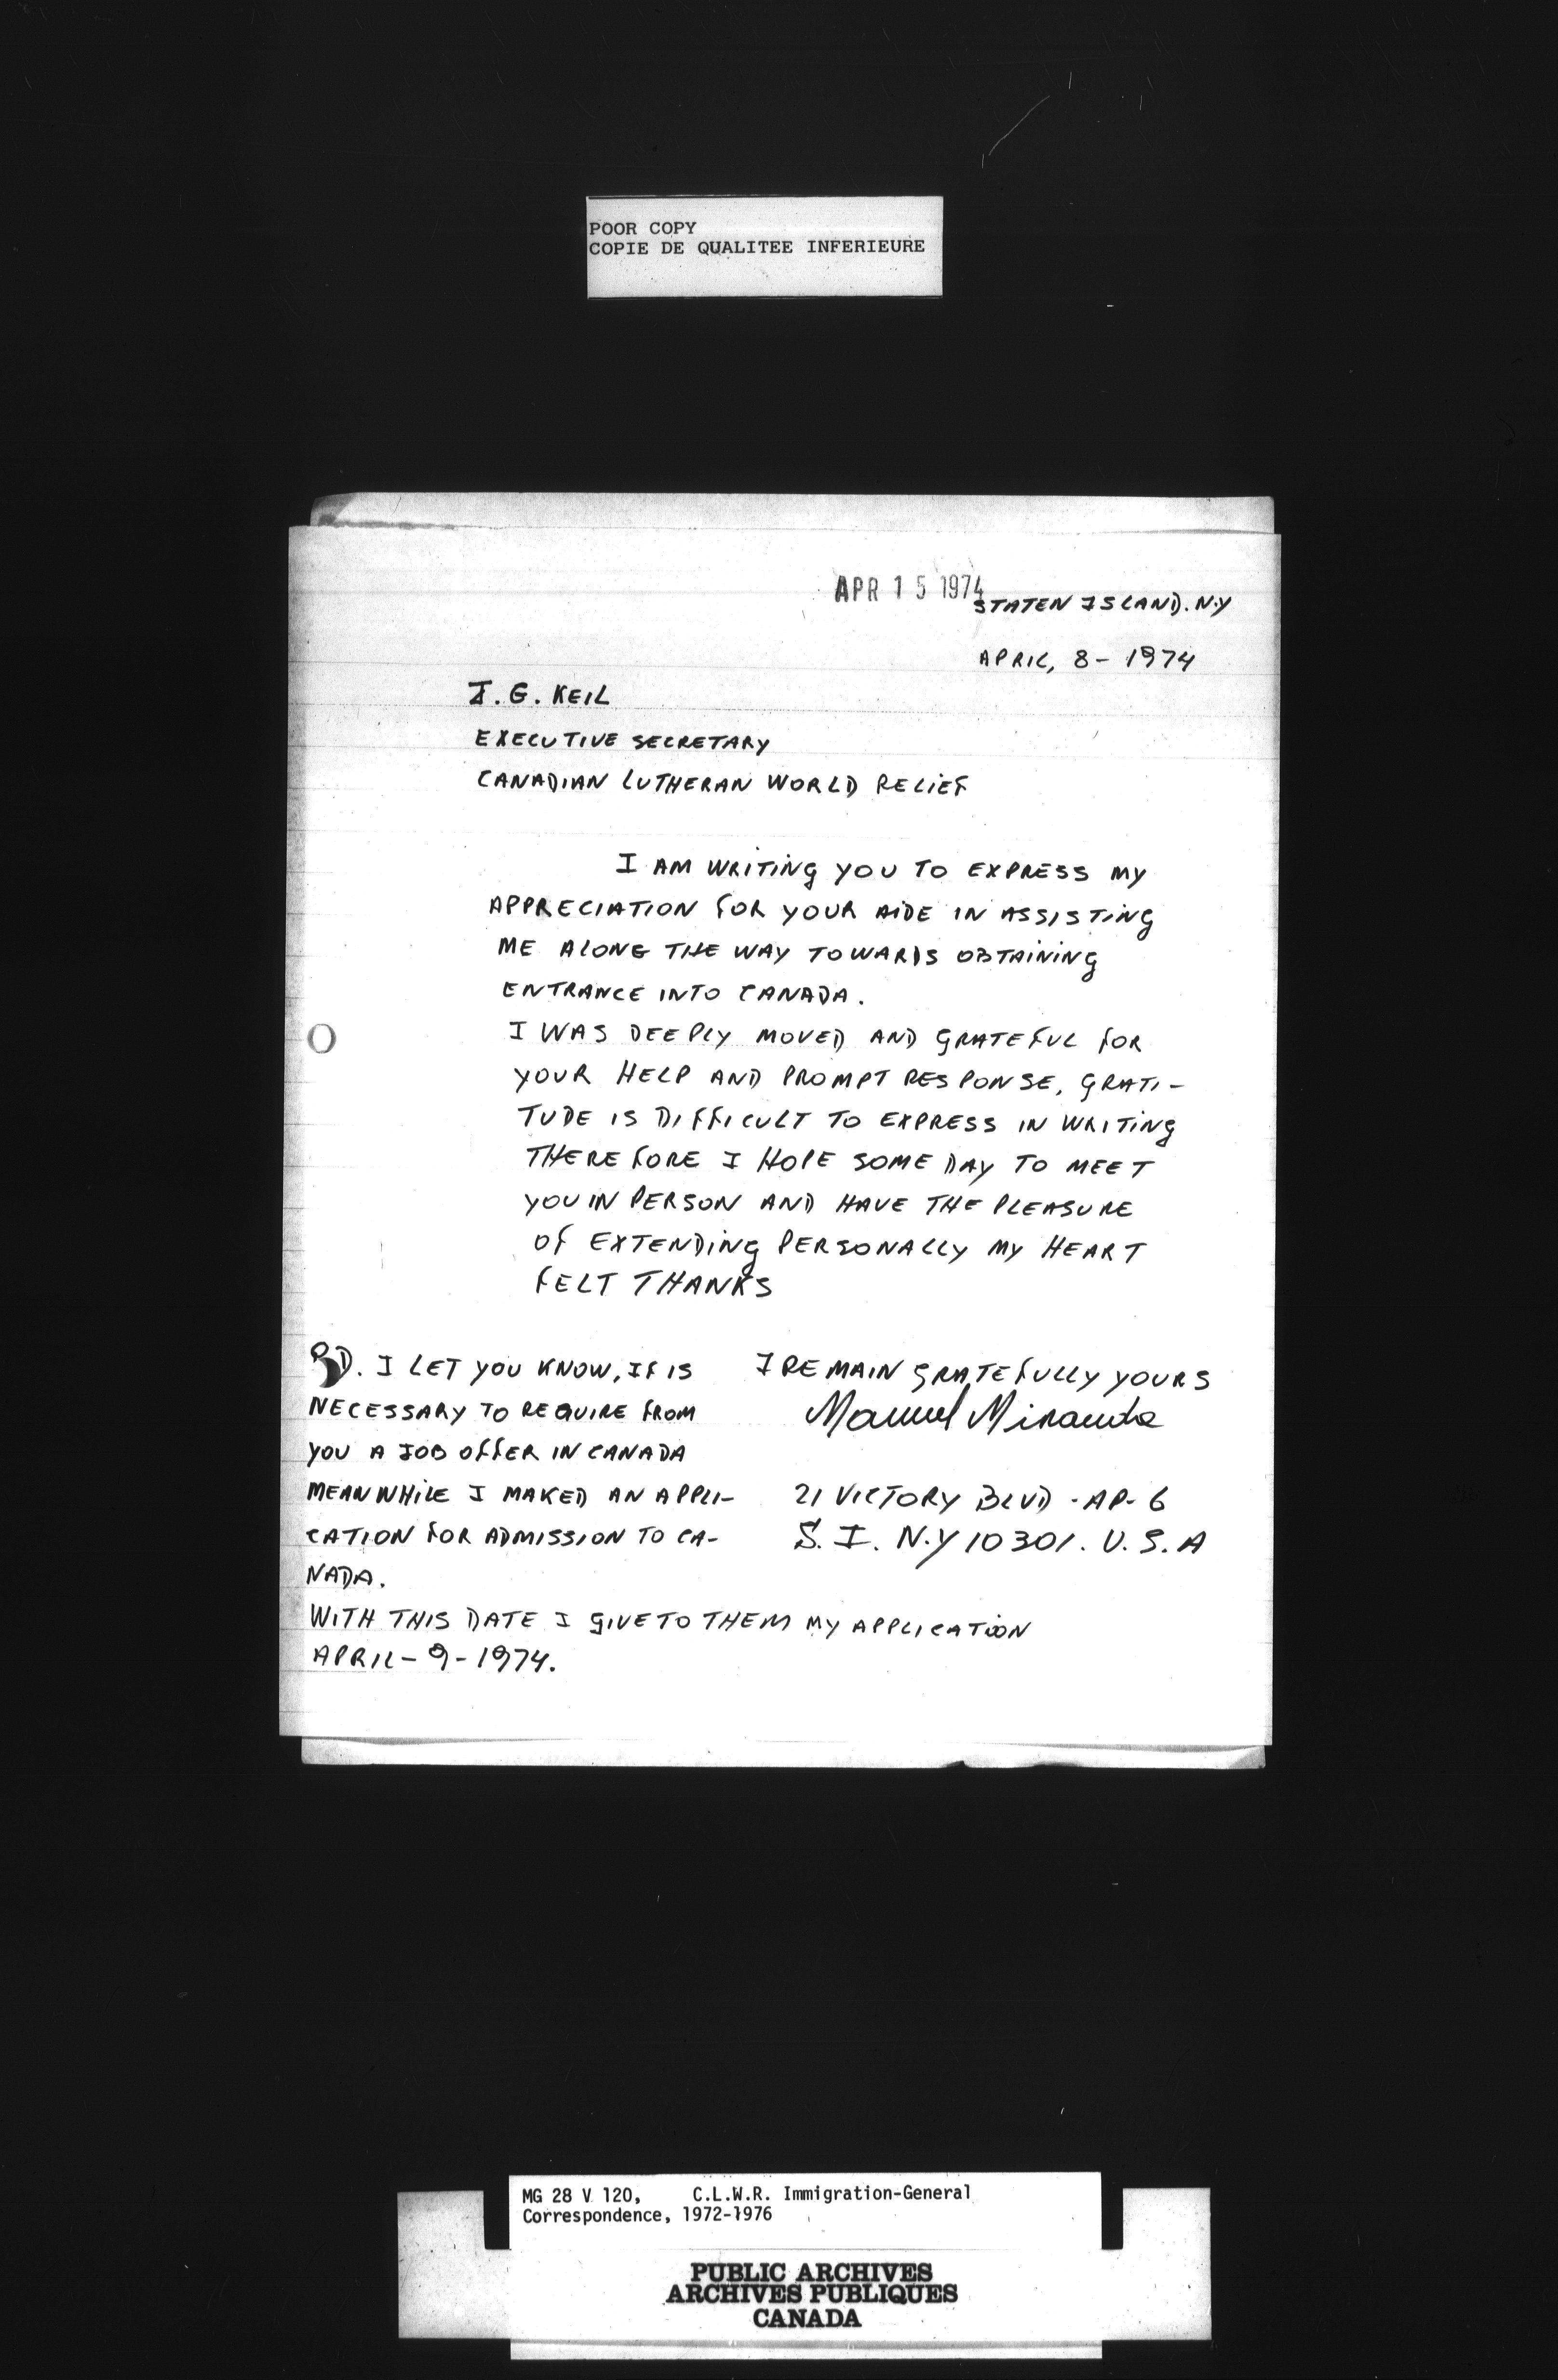 POOR COPY
COPIE DE QUALITEE INFERIEURE
APR 15 1974
STATEN ISLAND. N.Y
APRIL, 8 - 1974
I. G. KEIL
EXECUTIVE SECRETARY
CANADIAN LUTHERAN WORLD RELIEF
I AM WRITING YOU TO EXPRESS MY
APPRECIATION FOR YOUR AIDE IN ASSISTING
ME ALONG THE WAY TOWARDS OBTAINING
ENTRANCE INTO CANADA.
I WAS DEEPLY MOVED AND GRATEFUL FOR
YOUR HELP AND PROMPT RESPONSE, GRATI-
TUDE IS DIFFICULT TO EXPRESS IN WRITING
THEREFORE I HOPE SOME DAY TO MEET
YOU IN PERSON AND HAVE THE PLEASURE
OF EXTENDING PERSONALLY MY HEART
FELT THANKS
I REMAIN GRATEFULLY YOURS
Manuel Miranda
21 VICTORY BLVD - AP- 6
S. I. N.Y 10301. U. S. A
PD. I LET YOU KNOW, IF IS
NECESSARY TO REQUIRE FROM
YOU A JOB OFFER IN CANADA
MEANWHILE I MAKED AN APPLI-
CATION FOR ADMISSION TO CA-
NADA.
WITH THIS DATE I GIVE TO THEM MY APPLICATION
APRIL - 9 - 1974.
MG 28 V 120, C.L.W.R. Immigration-General
Correspondence, 1972-1976
PUBLIC ARCHIVES
ARCHIVES PUBLIQUES
CANADA